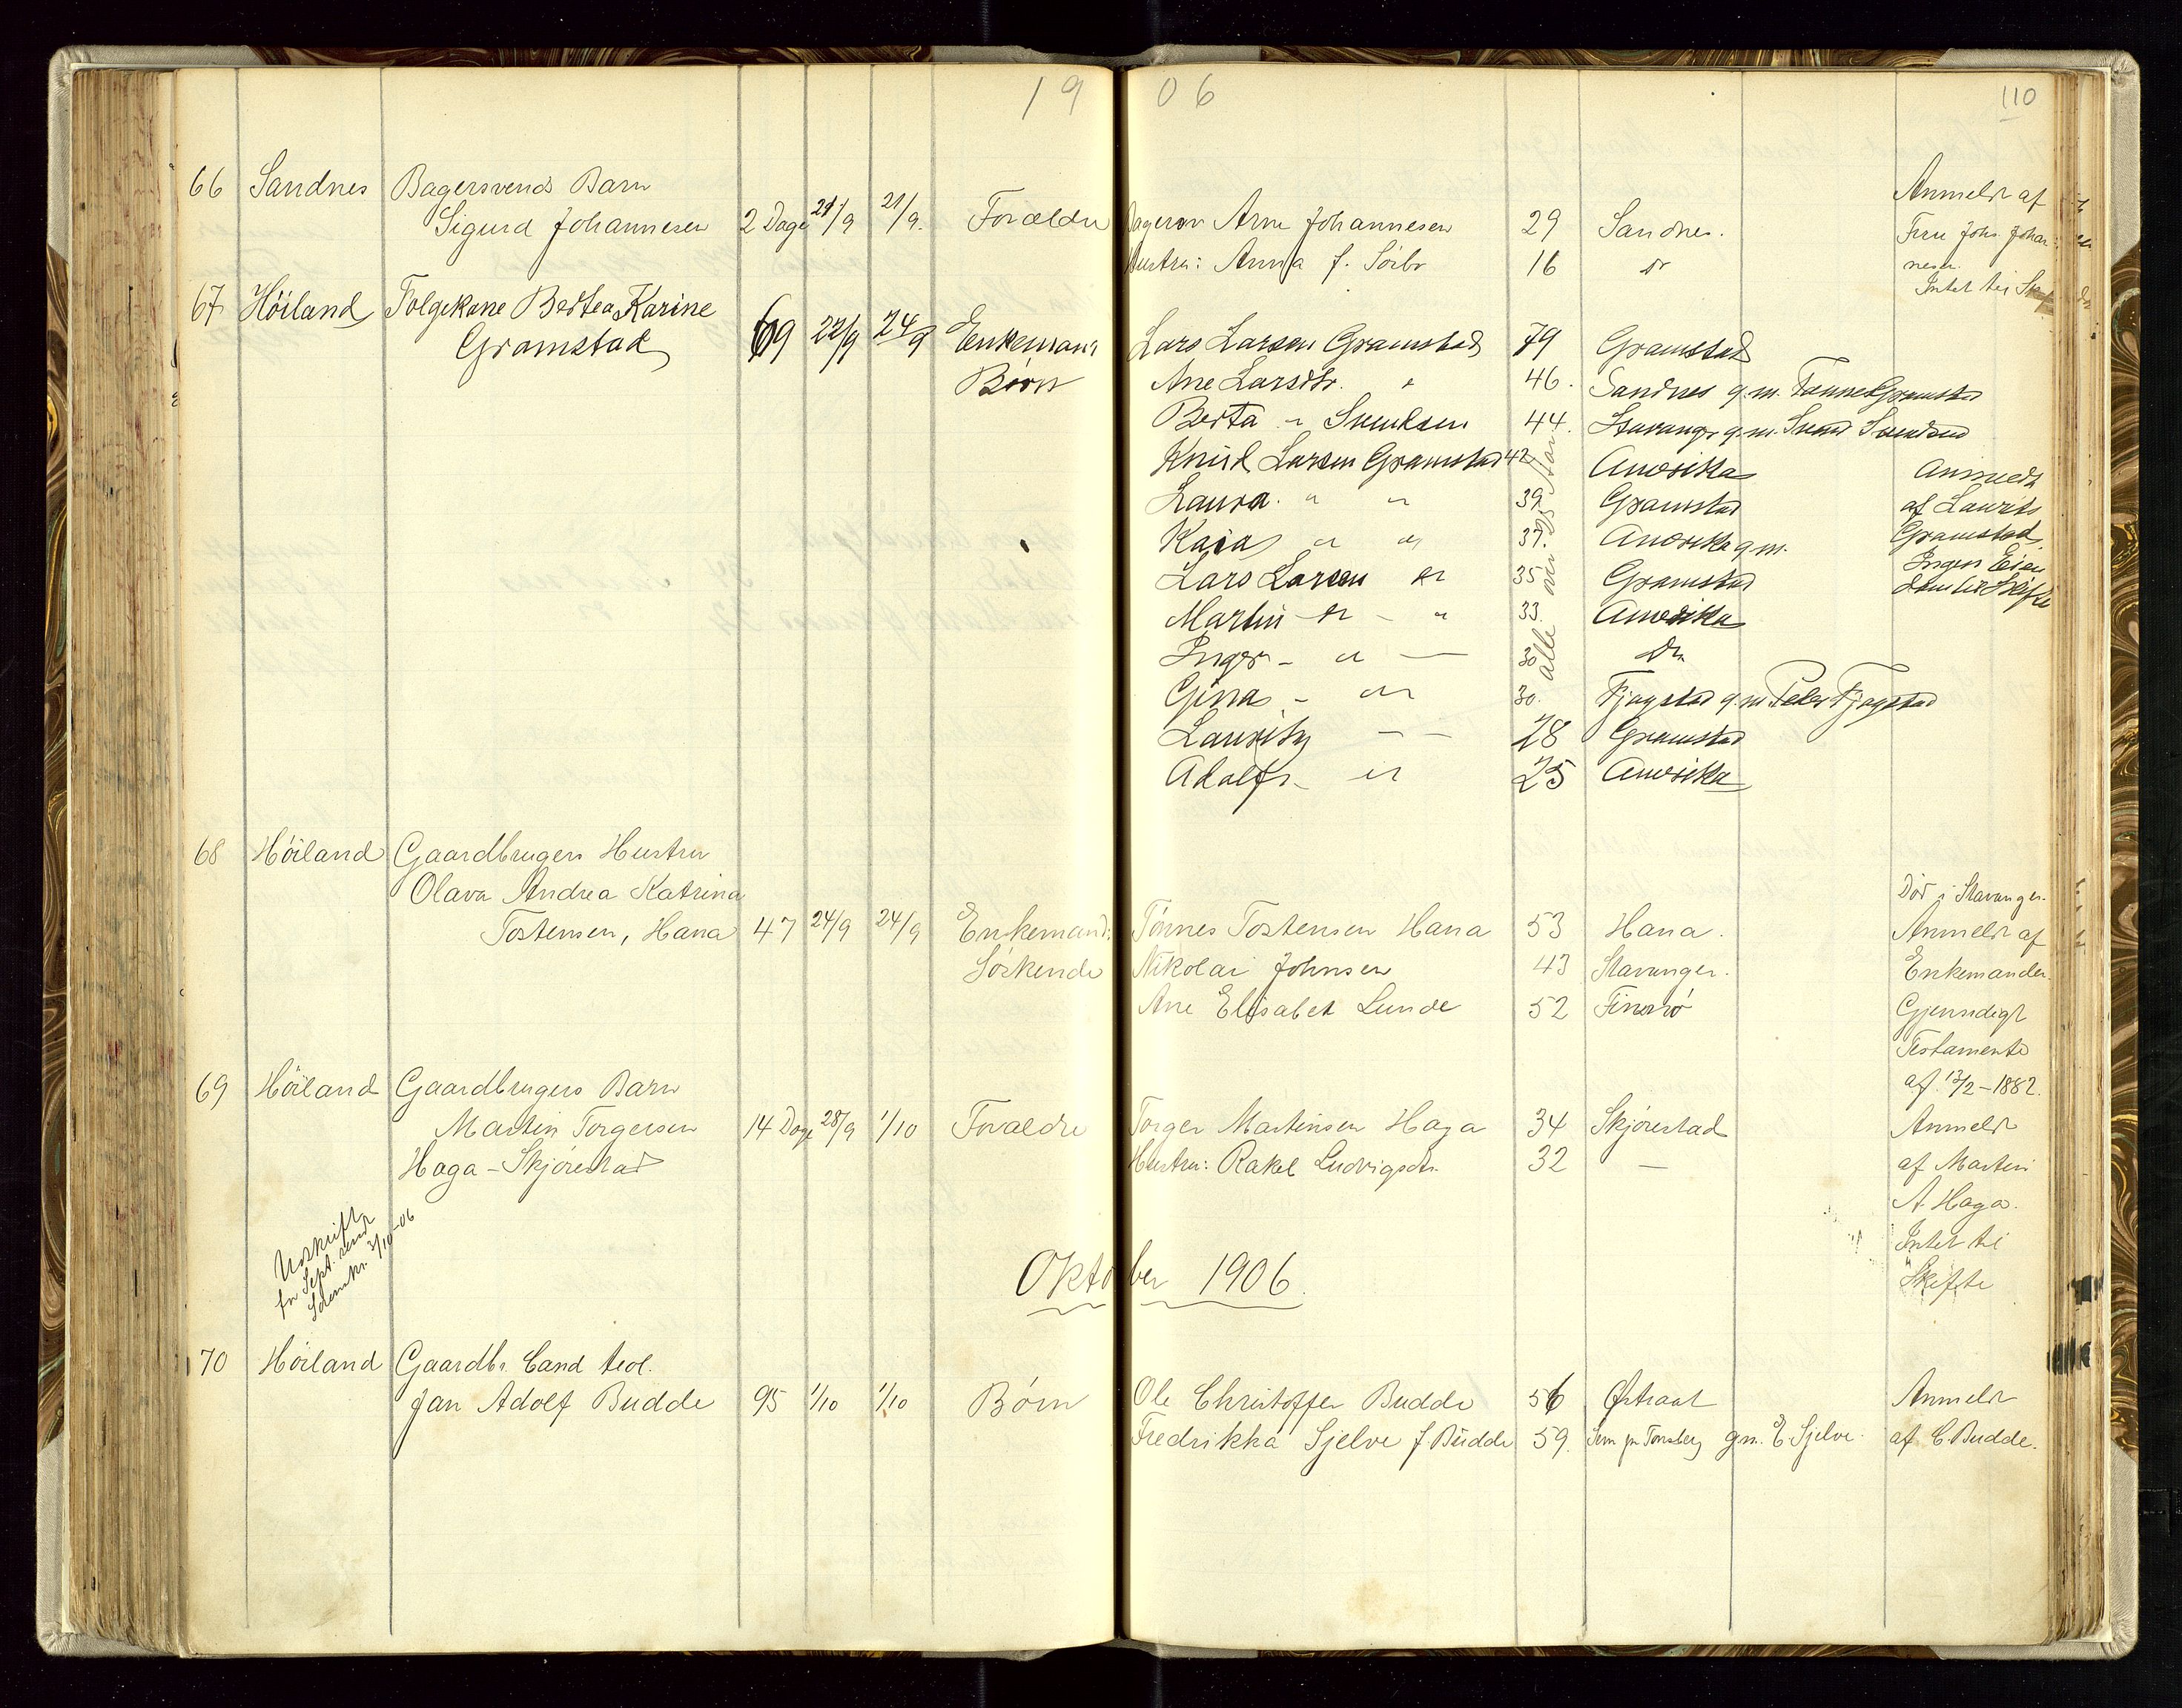 19 06
110
66 Sandnes Bagersvends Barn
Anmeldt af
Sigurd Johannesen 2 Dage 21/9 21/9. Forældre Bagersv Arne Johannesen 29 Sandnes. Fru Johs. Johan-
Hustru: Anna f. Sörbr 16 do nesen.
Intet til
67 Höiland Folgekone Bertea Karine
Gramstad 69 22/9 24/9 Enkemann Lars Larsen Gramstad 79 Gramstad
Børn Ane Larsdtr. " 46. Sandnes g.m. Tønnes Gramstad
Berta " Svendsen 44. Stavanger g.m. Svend Svendsen
Knud Larsen Gramstad 42 Amerika Anmeldt
Laura " " 39 Gramstad af Laurits
Kaia " " 37. Amerika g.m. Gramstad.
Lars Larsen " 35 Gramstad Ingen Eien
Martin " - " 33. Amerika dom til Skifte
Inger - " — 30 Do
Gina - " 30. Fjogstad g.m. Peder Fjogstad
Lauritz - - 28 Gramstad
Adolf - " 25 Amerika
alle
68 Höiland Gaardbrugers Hustru
Olava Andrea Katrina Död i Stavanger.
Tostensen, Hana 47 24/9 24/9 Enkemand: Tönnes Tostensen Hana 53 Hana. Anmeldt af
Söskende Nikolai Johnsen 43 Stavanger. Enkemanden
Ane Elisabet Lunde 52 Finnö Gjensidigt
Testamente
af 13/2-1882.
69 Höiland Gaardbrugers Barn
Martin Torgersen 14 Dage 28/9 1/10 Forældre Torger Martinsen Haga 34 Skjörestad Anmeldt
Haga-Skjörestad Hustru: Rakel Ludvigsdtr. 32 — af Martin
A. Haga.
Intet til
Skifte
Udskrift
for Sept. sendt
Sorenskr. 3/10-06
Oktober 1906.
70 Höiland Gaardbr. Cand teol.
Jan Adolf Budde 95 1/10 1/10 Börn Ole Christoffer Budde 56 Østraat Anmeldt
Fredrikka Sjelve f. Budde 59. Sem pr Tønsberg g.m. E. Sjelve. af C. Budde.